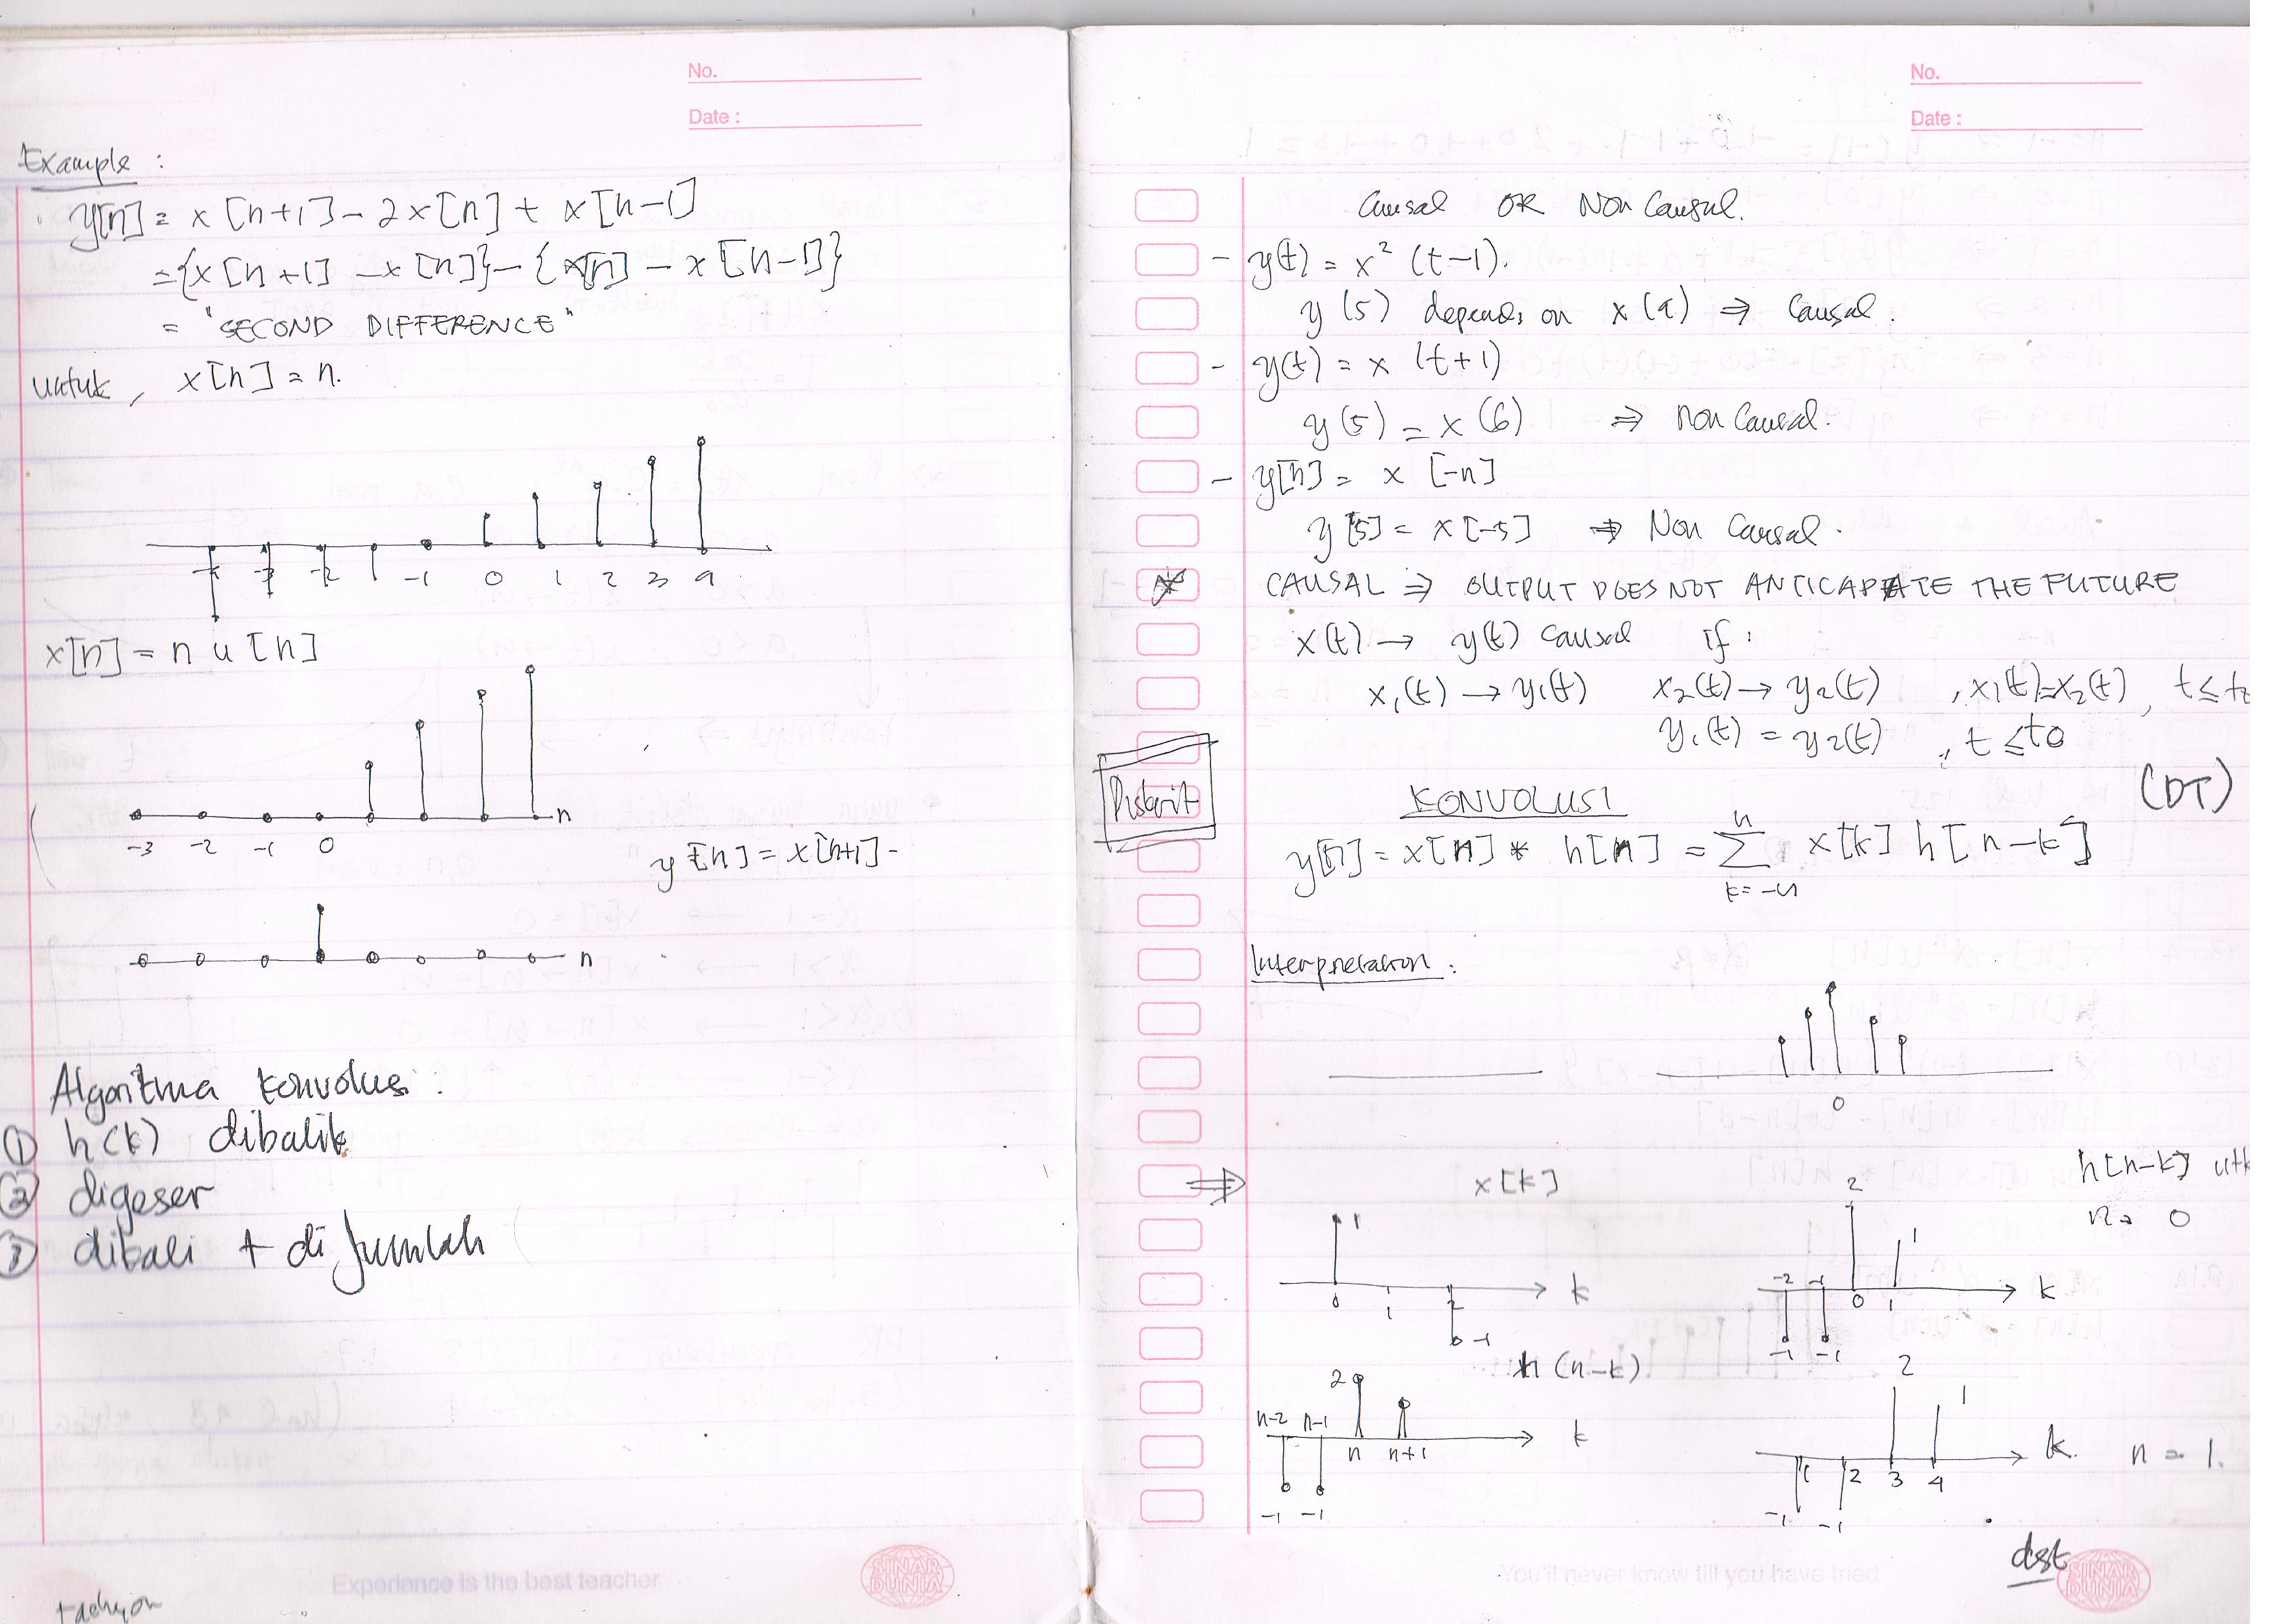 No.
Date :
Example :
y[n] = x[n+1] - 2x[n] + x[n-1]
= {x[n+1] - x[n]} - {x[n] - x[n-1]}
= "SECOND DIFFERENCE"
untuk, x[n] = n.
-2 -1 0 1 2 3 4
x[n] = n u[n]
-3 -2 -1 0 n
y[n] = x[n+1] -
n
Algoritma konvolusi :
① h(k) dibalik
② digeser
③ dikali + dijumlah
Experience is the best teacher
SINAR DUNIA
tachyon
No.
Date :
Causal OR Non Causal.
- y(t) = x² (t-1).
y(5) depends on x(4) ⇒ Causal.
- y(t) = x (t+1)
y(5) = x(6) ⇒ Non Causal.
- y[n] = x [-n]
y[5] = x[-5] ⇒ Non Causal.
* CAUSAL ⇒ OUTPUT DOES NOT ANTICAPATE THE FUTURE
x(t) → y(t) causal if :
x₁(t) → y₁(t) x₂(t) → y₂(t) , x₁(t)=x₂(t), t ≤ t₀
y₁(t) = y₂(t) , t ≤ t0
Diskrit
KONVOLUSI (DT)
y[n] = x[n] * h[n] = ∑ x[k] h[n-k]
k = -n
Interpretation :
0
⇒ x[k] h[n-k] utk
n = 0
1 2 1
0 1 2 k -2 -1 0 1 k
-1 -1 -1
h(n-k)
2 2 1
n-2 n-1 n n+1 k 1 2 3 4 k. n = 1.
-1 -1 -1 -1
dst
You'll never know till you have tried
SINAR DUNIA